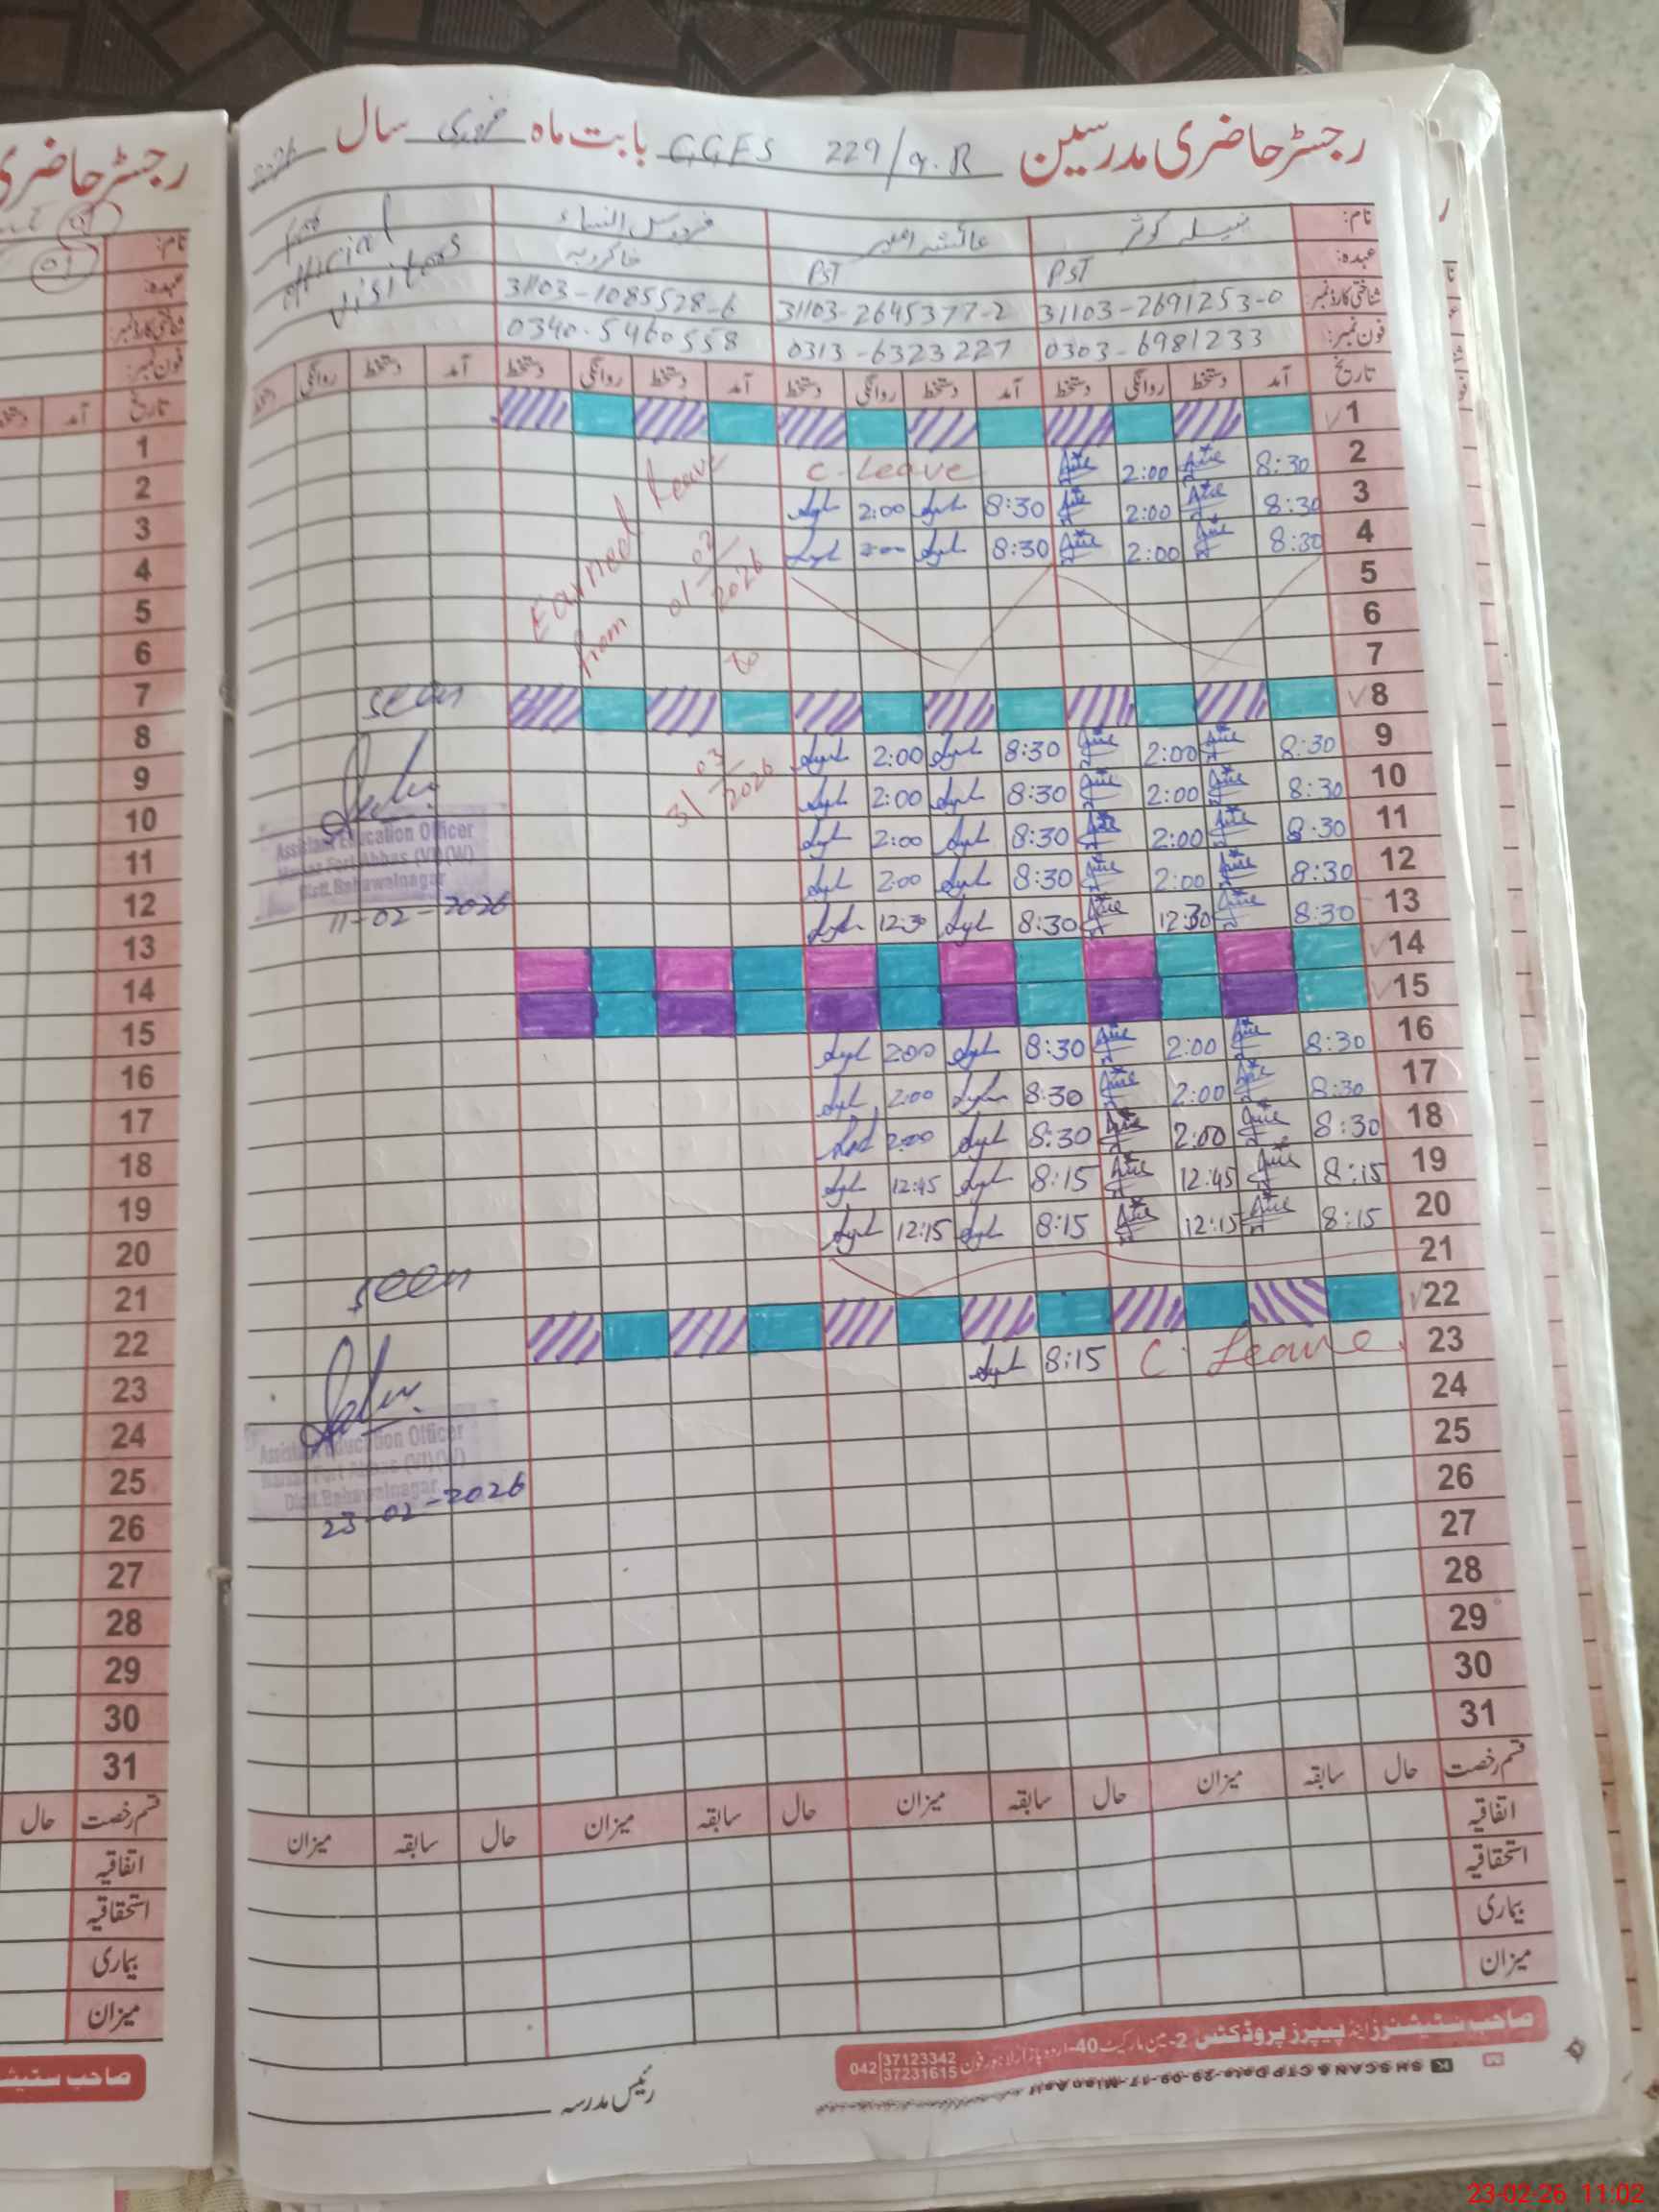 رجسٹر حاضری مدرسین GGES 229/9.R بابت ماہ فروری سال 2026
نام: کوثر عائشہ فردوس النساء For
عہدہ: PST PST خاکروبہ official
شناختی کارڈ نمبر: 31103-2691253-0 31103-2645377-2 31103-1085528-6 visitors
فون نمبر: 0303-6981233 0313-6323227 0340-5460558
تاریخ آمد دستخط روانگی دستخط آمد دستخط روانگی دستخط آمد دستخط روانگی دستخط آمد دستخط روانگی دستخط
1
2 8:30 2:00 C-Leave
3 8:30 2:00 8:30 2:00
4 8:30 2:00 8:30 2:00
5
6
7
Earned Leave
from 01/02/2026
to
31/03/2026
8
seen
9 8:30 2:00 8:30 2:00
10 8:30 2:00 8:30 2:00
11 8:30 2:00 8:30 2:00
12 8:30 2:00 8:30 2:00
13 8:30 12:30 8:30 12:30
Assistant Education Officer
Markaz Fort Abbas (VI)(W)
Distt. Bahawalnagar
11-02-2026
14
15
16 8:30 2:00 8:30 2:00
17 8:30 2:00 8:30 2:00
18 8:30 2:00 8:30 2:00
19 8:15 12:45 8:15 12:45
20 8:15 12:15 8:15 12:15
21
seen
22
23 C. Leave 8:15
24
25
Assistant Education Officer
Markaz Fort Abbas (VI)(W)
Distt. Bahawalnagar
23-02-2026
26
27
28
29
30
31
قسم رخصت حال سابقہ میزان حال سابقہ میزان حال سابقہ میزان حال سابقہ میزان
اتفاقیہ
استحقاقیہ
بیماری
میزان
صاحب سٹیشنرز اینڈ پیپرز پروڈکٹس 2-مین مارکیٹ 40-اردو بازار لاہور فون 042 37123342
37231615
رئیس مدرسہ
رجسٹر حاضری
01
نام:
01
عہدہ:
شناختی کارڈ نمبر:
فون نمبر:
تاریخ آمد
1
2
3
4
5
6
7
8
9
10
11
12
13
14
15
16
17
18
19
20
21
22
23
24
25
26
27
28
29
30
31
قسم رخصت حال
اتفاقیہ
استحقاقیہ
بیماری
میزان
صاحب سٹیشنرز
23-02-26 11:02